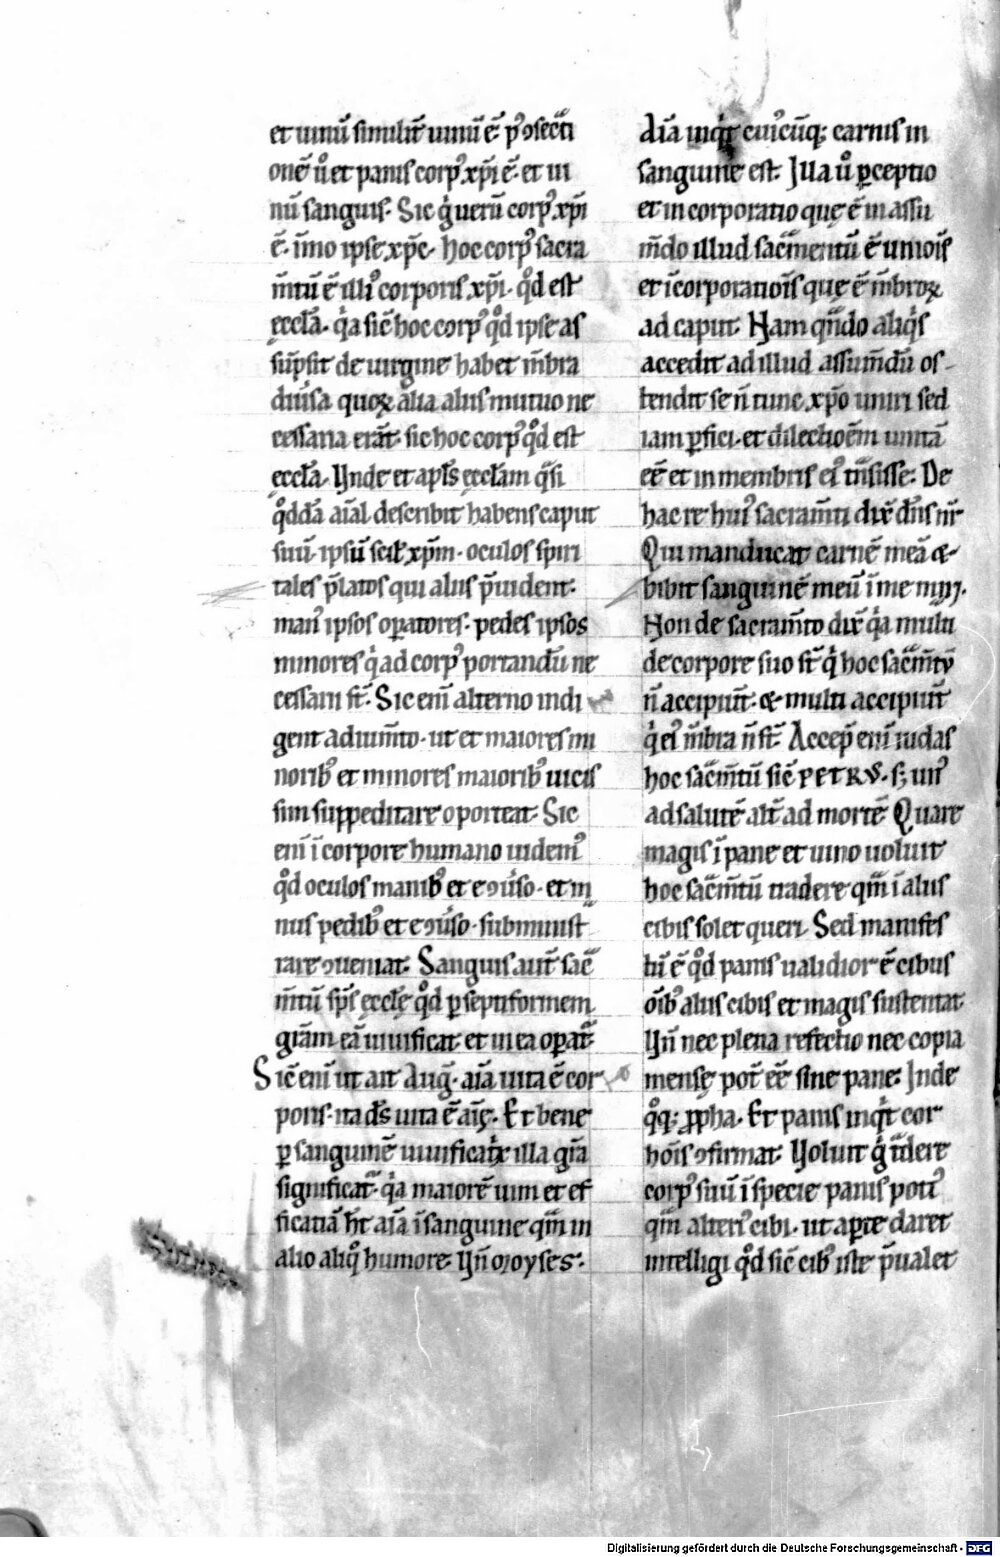 et uinū similit̄ uinū ē. p᷒ ꝯsecti
onē ū et panis corp᷒ xp̄i ē. et ui
nū sanguis. Sic ḡ uerū corp᷒ xp̄i
ē. īmo ipse xp̄c. hoc corp᷒ sacra
m̄tū ē illi᷒ corporis xp̄i. qd̄ est
ęccl̄a. q̇a sic̄ hoc corp᷒ qd̄ ipse as
sūpsit de uirgine habet m̄bra
diuisa quoꝝ alia aliis mutuo ne
cessaria erāt. sic hoc corp᷒ qd̄ est
ęccl̄a. Vnde et apl̄s ęccl̄am q̄si
qͦddā aīal describit habens caput
suū. ipsū scil̄ xp̄m. oculos spiri
tales p̄latos qui aliis p̄uident.
man᷒ ipsos oꝑatores. pedes ipsos
minores q̇ ad corp᷒ portandū ne
cessarii st̄. Sic enī alterno indi
gent adium̄to. ut et maiores mi
norib᷒ et minores maiorib᷒ uicis
sim suppeditare oporteat. Sic
enī ī corpore humano uidem᷒
qd̄ oculos manib᷒ et eꝯuͥso. et ma
nus pedib᷒ et eꝯuͥso. subminist
rare ꝯueniat. Sanguis aut̄ sac̄
m̄tū sp̄s ęccl̄ę qd̄ ꝑ septiformem
gr̄am eā uiuificat et in ea oꝑat᷒.
Sic̄ enī ut ait Auḡ. aīa uita ē cor
poris. ita ds̄ uita ē aīę. Et bene
ꝑ sanguinē uiuificatͥx illa gr̄a
significat᷒. q̇a maiorē uim et ef
ficatiā ht̄ aīa ī sanguine qm̄ in
alio aliqͦ humore. Vn̄ moyses.
diā inq̇t cui᷒cūq; carnis in
sanguine est. Illa ū ꝑceptio
et incorporatio quę ē in assu
m̄do illud sac̄mentū ē unioīs
et īcorporatioīs quę ē m̄broꝝ
ad caput. Nam qn̄do aliq̇s
accedit ad illud assum̄dū os
tendit se n̄ tunc xp̄o uniri sed
iam ꝑfici. et dilectioēm unitā
eē et in membris ei᷒ tn̄sisse. De
hac re hui᷒ sacram̄ti dix̄ dn̄s nr̄
Qui manducat carnē meā &
bibit sanguinē meū ī me m̄.
Non de sacram̄to dix̄ q̇a multi
de corpore suo st̄ q̇ hoc sac̄m̄tū
n̄ accipiūt. & multi accipiūt
q̇ ei᷒ m̄bra n̄ st̄. Accep̄ enī iudas
hoc sac̄m̄tū sic̄ PETRVS. s; un᷒
ad salutē alt̄ ad mortē. Quare
magis ī pane et uino uoluit
hoc sac̄m̄tū tradere qm̄ ī aliis
cibis solet queri. Sed manifes
tū ē qd̄ panis ualidior ē cibus
oīb᷒ aliis cibis et magis sustentat.
Vn̄ nec plena refectio nec copia
mensę pot̄ eē sine pane. Inde
qͦq; ꝓpha. Et panis inq̇t cor
hoīs ꝯfirmat. Voluit ḡ t̄dere
corp᷒ suū ī specie panis poti᷒
qm̄ alteri᷒ cibi. ut aꝑte daret
intelligi qd̄ sic̄ cib᷒ iste p̄ualet
Digitalisierung gefördert durch die Deutsche Forschungsgemeinschaft - DFG